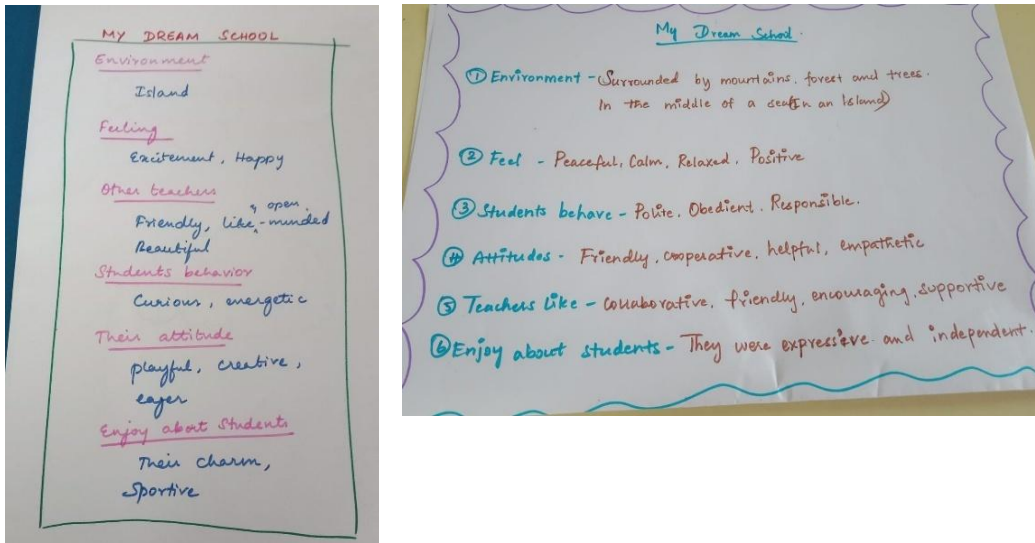 MY DREAM SCHOOL
Environment
Island
Feeling
Excitement, Happy
Other teachers
Friendly, like, & open-minded
Beautiful
Students behavior
Curious, energetic
Their attitude
playful, creative,
eager
Enjoy about Students
Their charm,
Sportive
My Dream School.
① Environment - Surrounded by mountains, forest and trees.
In the middle of a sea(In an Island)
② Feel - Peaceful, Calm, Relaxed, Positive
③ Students behave - Polite, Obedient, Responsible.
④ Attitudes - Friendly, cooperative, helpful, empathetic
⑤ Teachers like - collaborative, friendly, encouraging, supportive
⑥ Enjoy about students - They were expressive and independent.